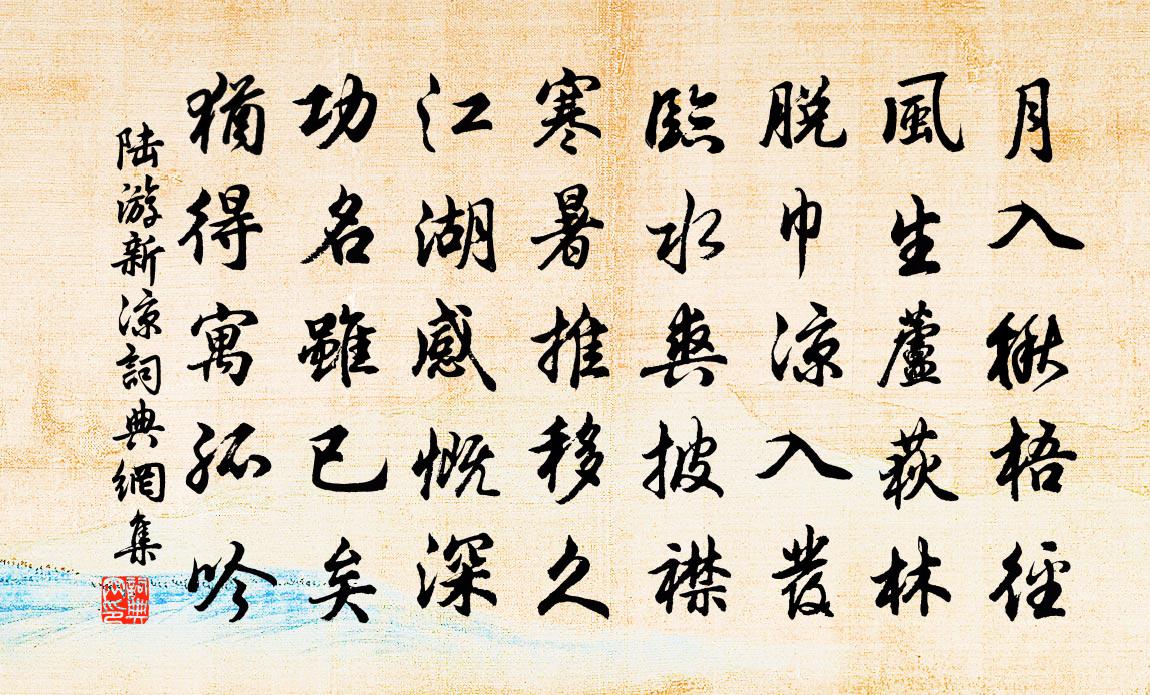 月入楸梧徑
風生蘆荻林
脫巾涼入髮
臨水爽披襟
寒暑推移久
江湖感慨深
功名雖已矣
猶得寓孤吟
陆游新涼詞典網集